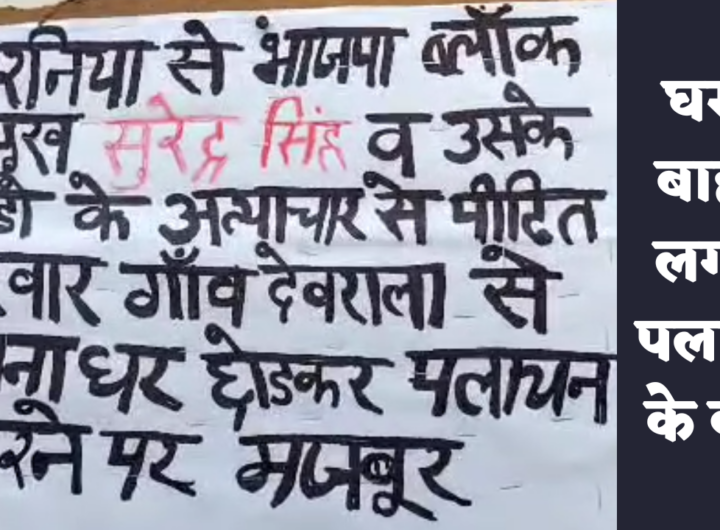 रनिया से भाजपा ब्लॉक
मुख सुरेद्र सिंह व उसके
डो के अत्याचार से पीटित
वार गाँव देवराला से
ना घर छोडकर पलायन
रने पर मजबूर
घर
बाह
लग
पल
के